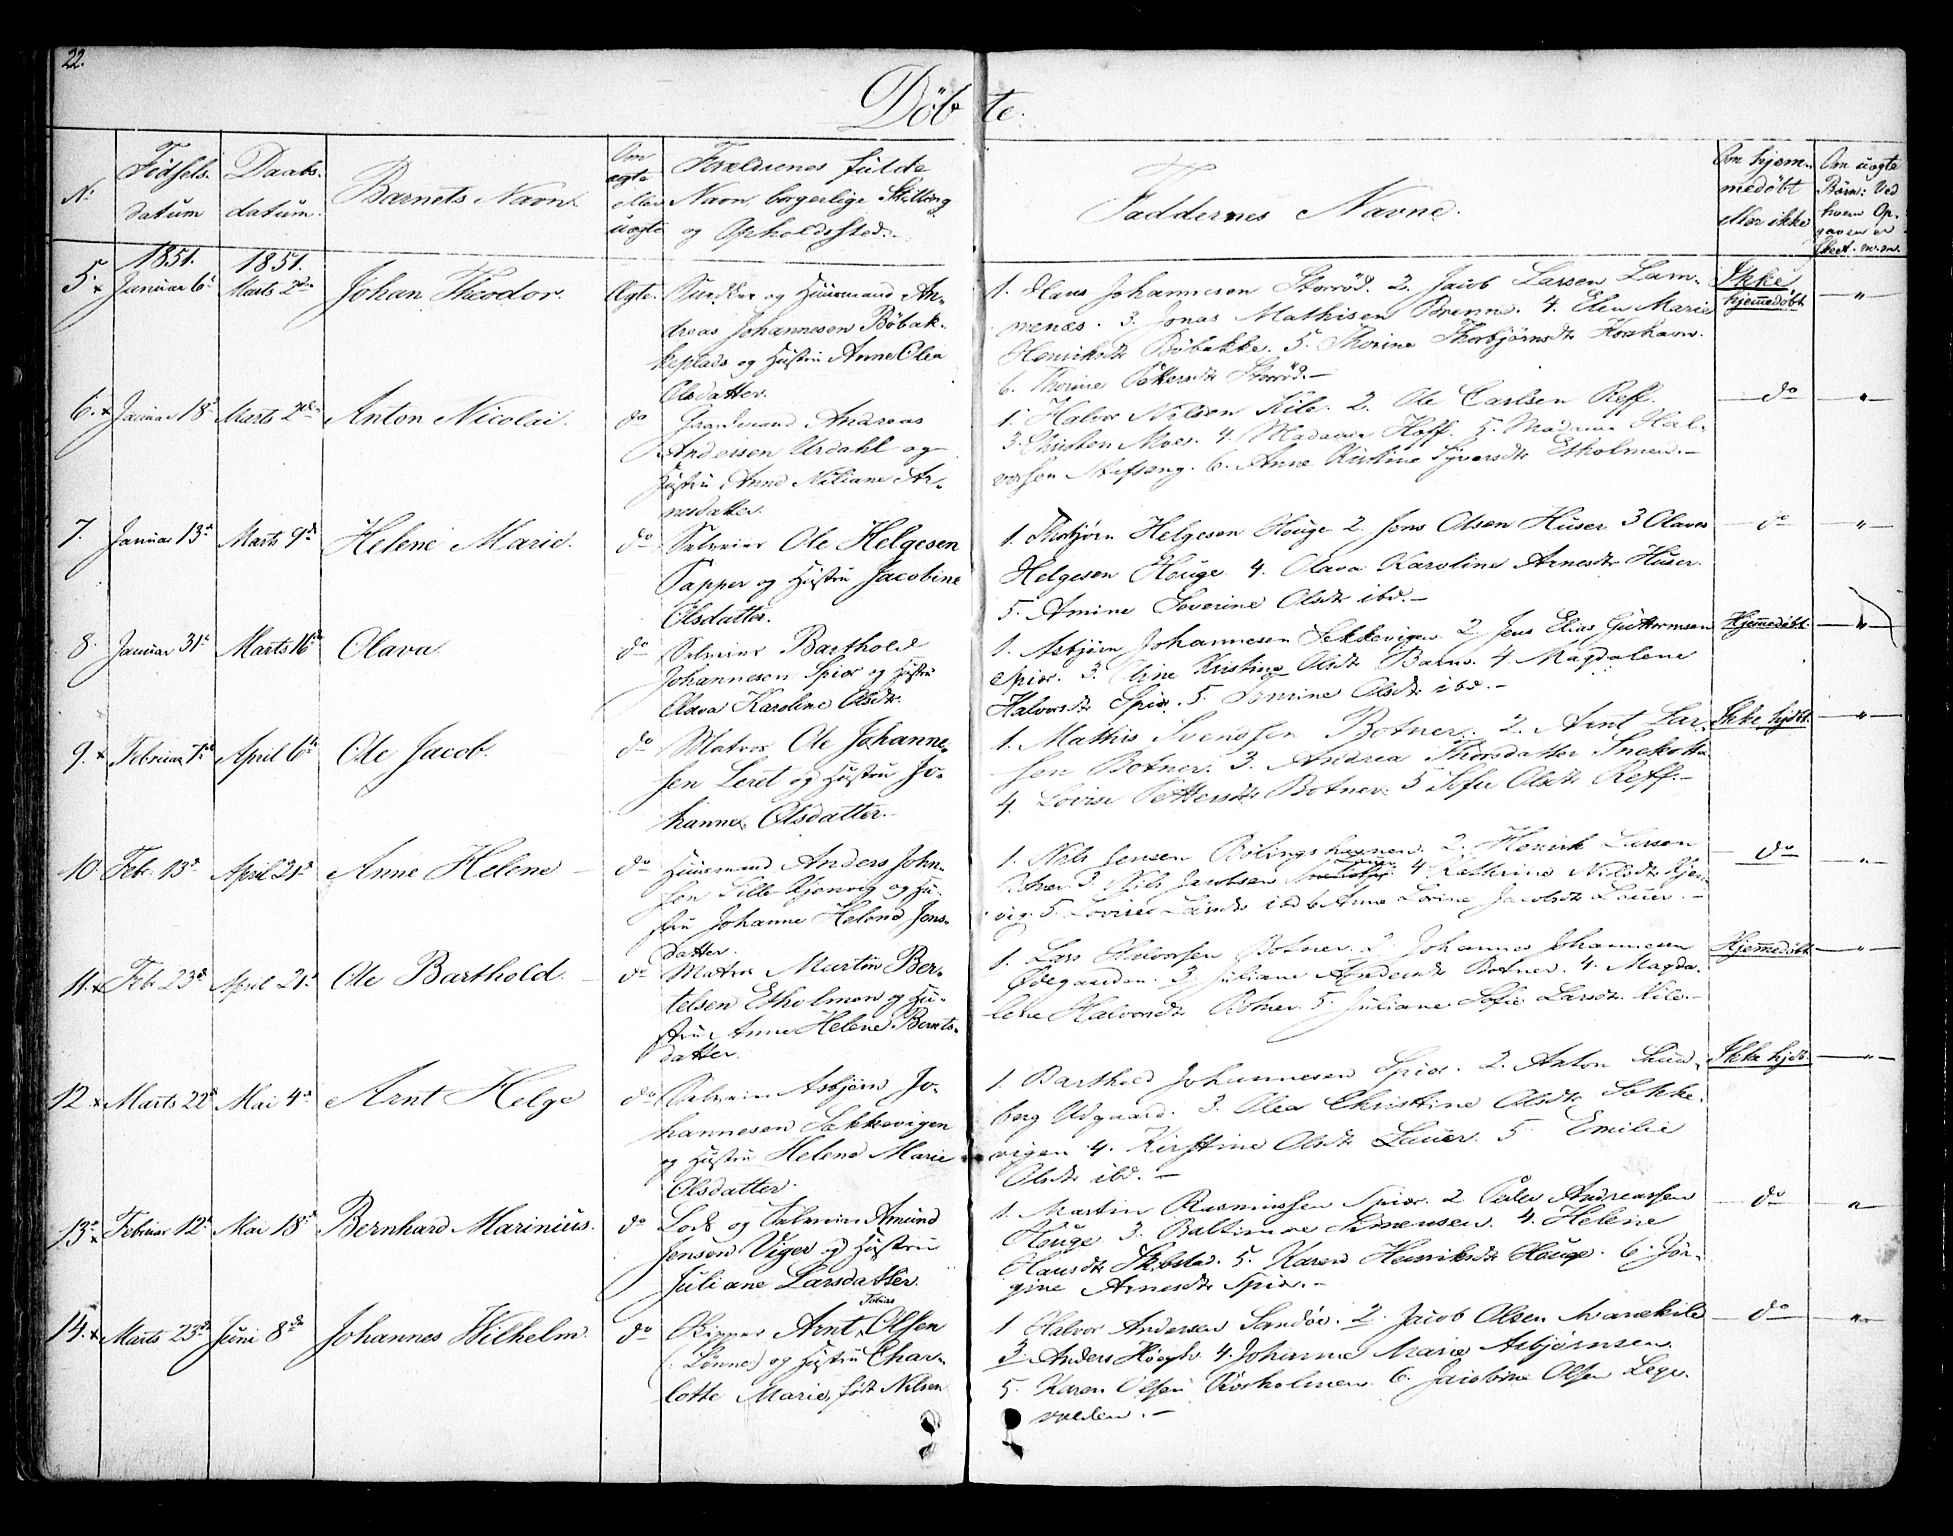 22.
Döbte.
N:
Födsels- datum
Daabs- datum.
Barnets Navn.
Om ægte eller uægte
Forældrenes fulde Navn, borgerlige Stilling og Opholdssted.
Faddernes Navne.
Om hjemmedøbt eller ikke
Om uægte Børn: Ved hvem Opgaven er skeet. m.m.
1851. 1851.
5. x Januar 6te Marts 2den Johan Theodor. Ægte.
og Huusmand An-
dreas Johannesen Böbak-
keplads og Hustru Anne Olea
Olsdatter.
1. Hans Johannesen Storröd. 2. Jacob Larsen Lam-
menæs. 3. Jonas Mathisen Brenne. 4. Elen Marie
Henriksdtr Böbakke. 5. Thorine Thorbjørnsdtr Korshavn.
6. Thorine Pettersdtr Storröd.-
Ikke hjemmedøbt
6. x Januar 18de Marts 2den Anton Nicolai. do
Gaardmand Andreas
Andersen Urdahl og
Hustru Anne Niliane Ar-
nesdatter.
1. Halvor Nilsen Kile. 2. Ole Carlsen Reff.
3. Christen Moes. 4. Madame Hoff. 5. Madame Hal-
vorsen 6. Anne Kirstine Syversdtr Etholmen.-
do
7. Januar 13de Marts 9de Helene Marie. do
Selveier Ole Helgesen
Tapper og Hustru Jacobine
Olsdatter.
1. Thorbjørn Helgesen Houge 2. Jens Olsen Huser. 3 Olaves
Helgesen Houge. 4. Olava Karoline Arnesdtr Huser.
5. Amine Severine Olsdtr ibd.-
do
8. Januar 31te Marts 16de Olava do
Selveier Barthold
Johannesen Spiær og Hustru
Olava Karoline Olsdtr.
1. Asbjørn Johannesen Sekkevigen. 2. Jens Elias Guttormsen
Spiær. 3. Kristine Olsdtr 4. Magdalene
Halvorsdtr Spiær. 5. Olsdtr ibd.-
Hjemmedøbt
9. x Februar 7de April 6te Ole Jacob. do
Matros Ole Johanne-
sen Leret og Hustru Jo-
hanne Olsdatter.
1. Mathis Svendsen Botner. 2. Arnt Lar-
sen Botner. 3. Andrea Thorsdatter
4. Lovise Pettersdtr Botner. 5 Sofie Olsdtr Reff.-
Ikke hjdbt.
10. Feb. 13de April 21de Anne Helene do
Huusmand Anders John-
sen Kjenvig og Hu-
stru Johanne Helene Jens-
datter.
1. Nils Jensen Bölingshavnen. 2. Henrik Larsen
3. Nils Jacobsen 4 Kathrine Nilsdtr Kjen-
vig. 5. Lovise Larsdtr ibd 6 Anne Lovine Jacobsdtr Lauer.-
do
11. x Feb. 23de April 21de Ole Barthold. do
Matros Martin Ber-
telsen Etholmen og Hu-
stru Anne Helene Bernts-
datter.
1. Lars Halvorsen Botner. 2 Johannes Johannesen
Ödegaarden. 3. Juliane Andersdtr Botner. 4. Magda-
lene Halvorsdtr Botner. 5. Juliane Sofie Larsdtr. Kile.-
Hjemmedøbt
12. x Marts 22de Mai 4de Arnt Helge do
Selveier Asbjørn Jo-
hannesen Sekkevigen
og Hustru Helene Marie
Olsdatter.
1. Barthold Johannesen Spiær. 2. Anton
berg Udgaard. 3. Olea Christine Olsdtr Sekke-
vigen 4. Kirstine Olsdtr Lauer. 5. Emilie
Olsdtr ibd.-
Ikke hjdb.
13. x Februar 12te Mai 18de Bernhard Marinius. do
Lods og Selveier Amund
Jensen Viger og Hustru
Juliane Larsdatter.
1. Martin Rasmussen Spiær. 2 Peder Andreassen
Houge. 3. Baltinue Simensen. 4. Helene
Hansdtr 5. Karen Henriksdtr Houge. 6. Jør-
gine Arnesdtr Spiær.-
do
14. x Marts 23de Juni 8de Johannes Wilhelm. do
Skipper Arnt Tobias Olsen
(: Lønne) og Hustru Char-
lotte Marie, født Nilsen
1. Halvor Andersen Sandöe. 2. Jacob Olsen
3. Anders Höegh. 4. Johanne Marie Asbjørnsen.
5. Karen Olsen 6. Jacobine Olsen Lege-
volden.-
do